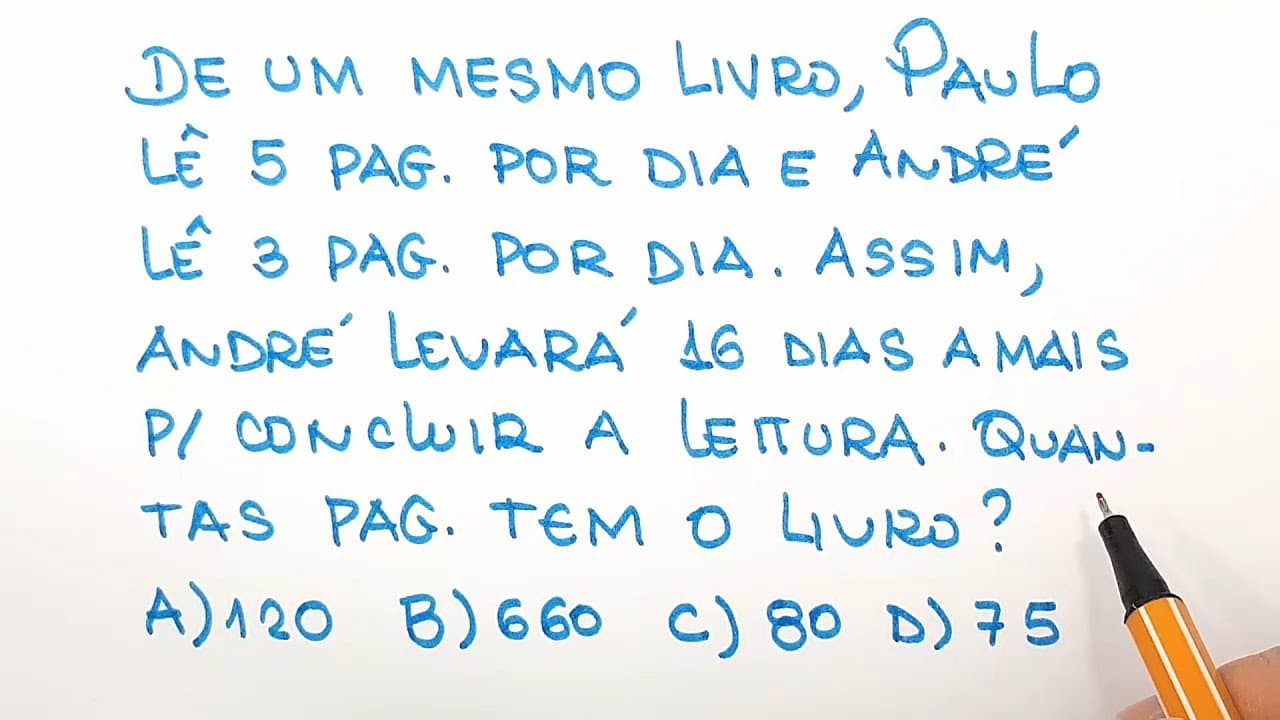 DE UM MESMO LIVRO, PAULO
LÊ 5 PAG. POR DIA E ANDRÉ
LÊ 3 PAG. POR DIA. ASSIM,
ANDRÉ LEVARÁ 16 DIAS A MAIS
P/ CONCLUIR A LEITURA. QUAN-
TAS PAG. TEM O LIVRO?
A) 120 B) 660 C) 80 D) 75